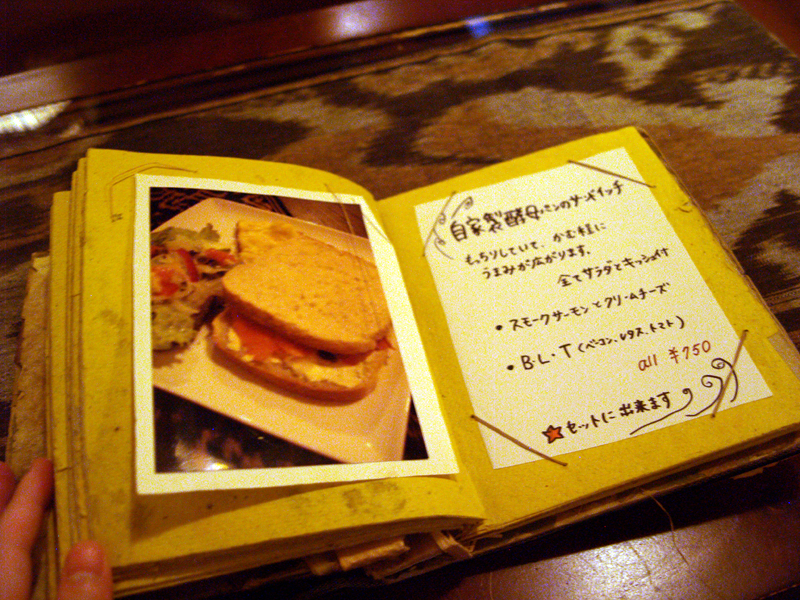 自家製酵母パンのサンドイッチ
もっちりしていて、かむ程に
うまみが広がります。
全てサラダとキッシュ付
• スモークサーモンとクリームチーズ
• B・L・T (ベーコン、レタス、トマト)
all ¥750
★セットに出来ます